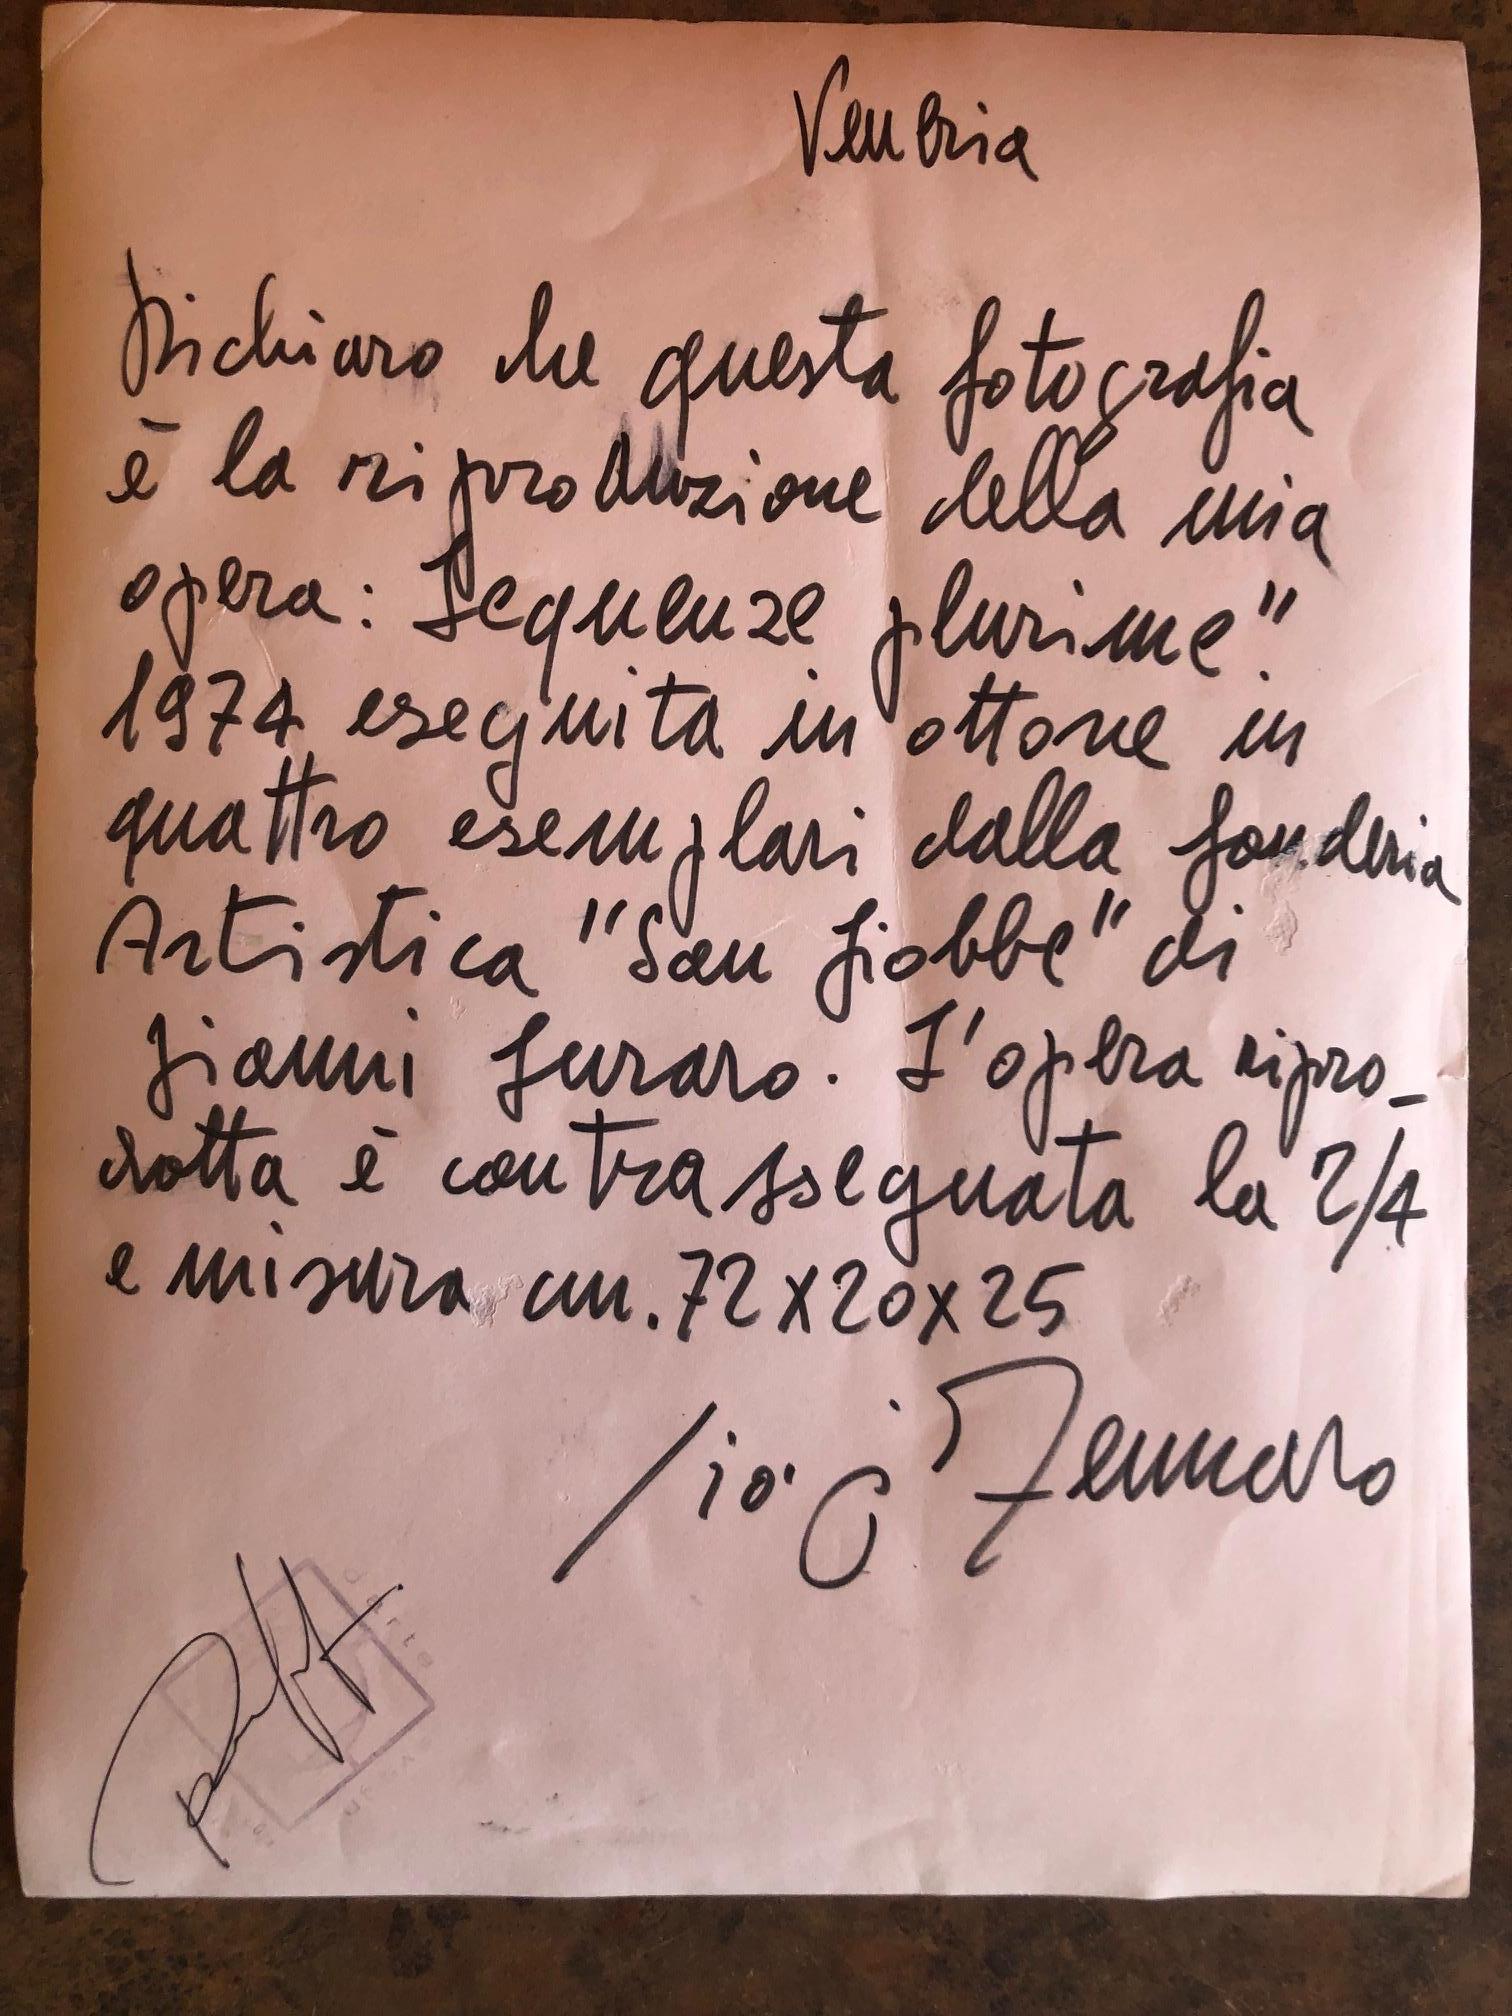 Venezia
Dichiaro che questa fotografia
è la riproduzione della mia
opera: Sequenze plurime".
1974 eseguita in ottone in
quattro esemplari dalla fonderia
Artistica "San Giobbe" di
Gianni Luraro. L'opera ripro_
dotta è contrassegnata la 2/4
e misura cm. 72x20x25